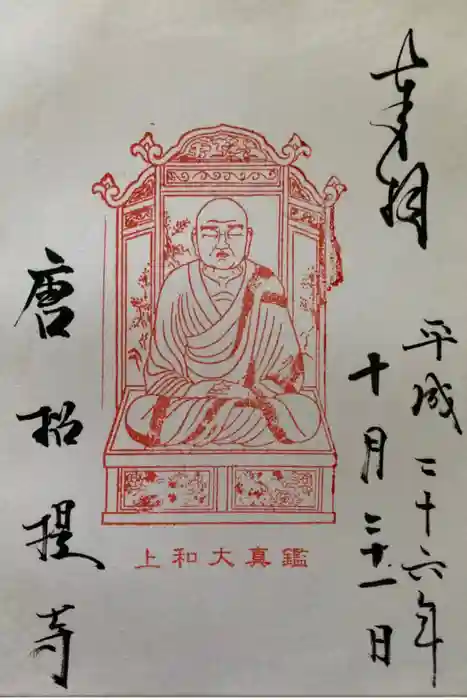 奉拝
平成二十六年
十月二十一日
上和大真鑑
唐招提寺